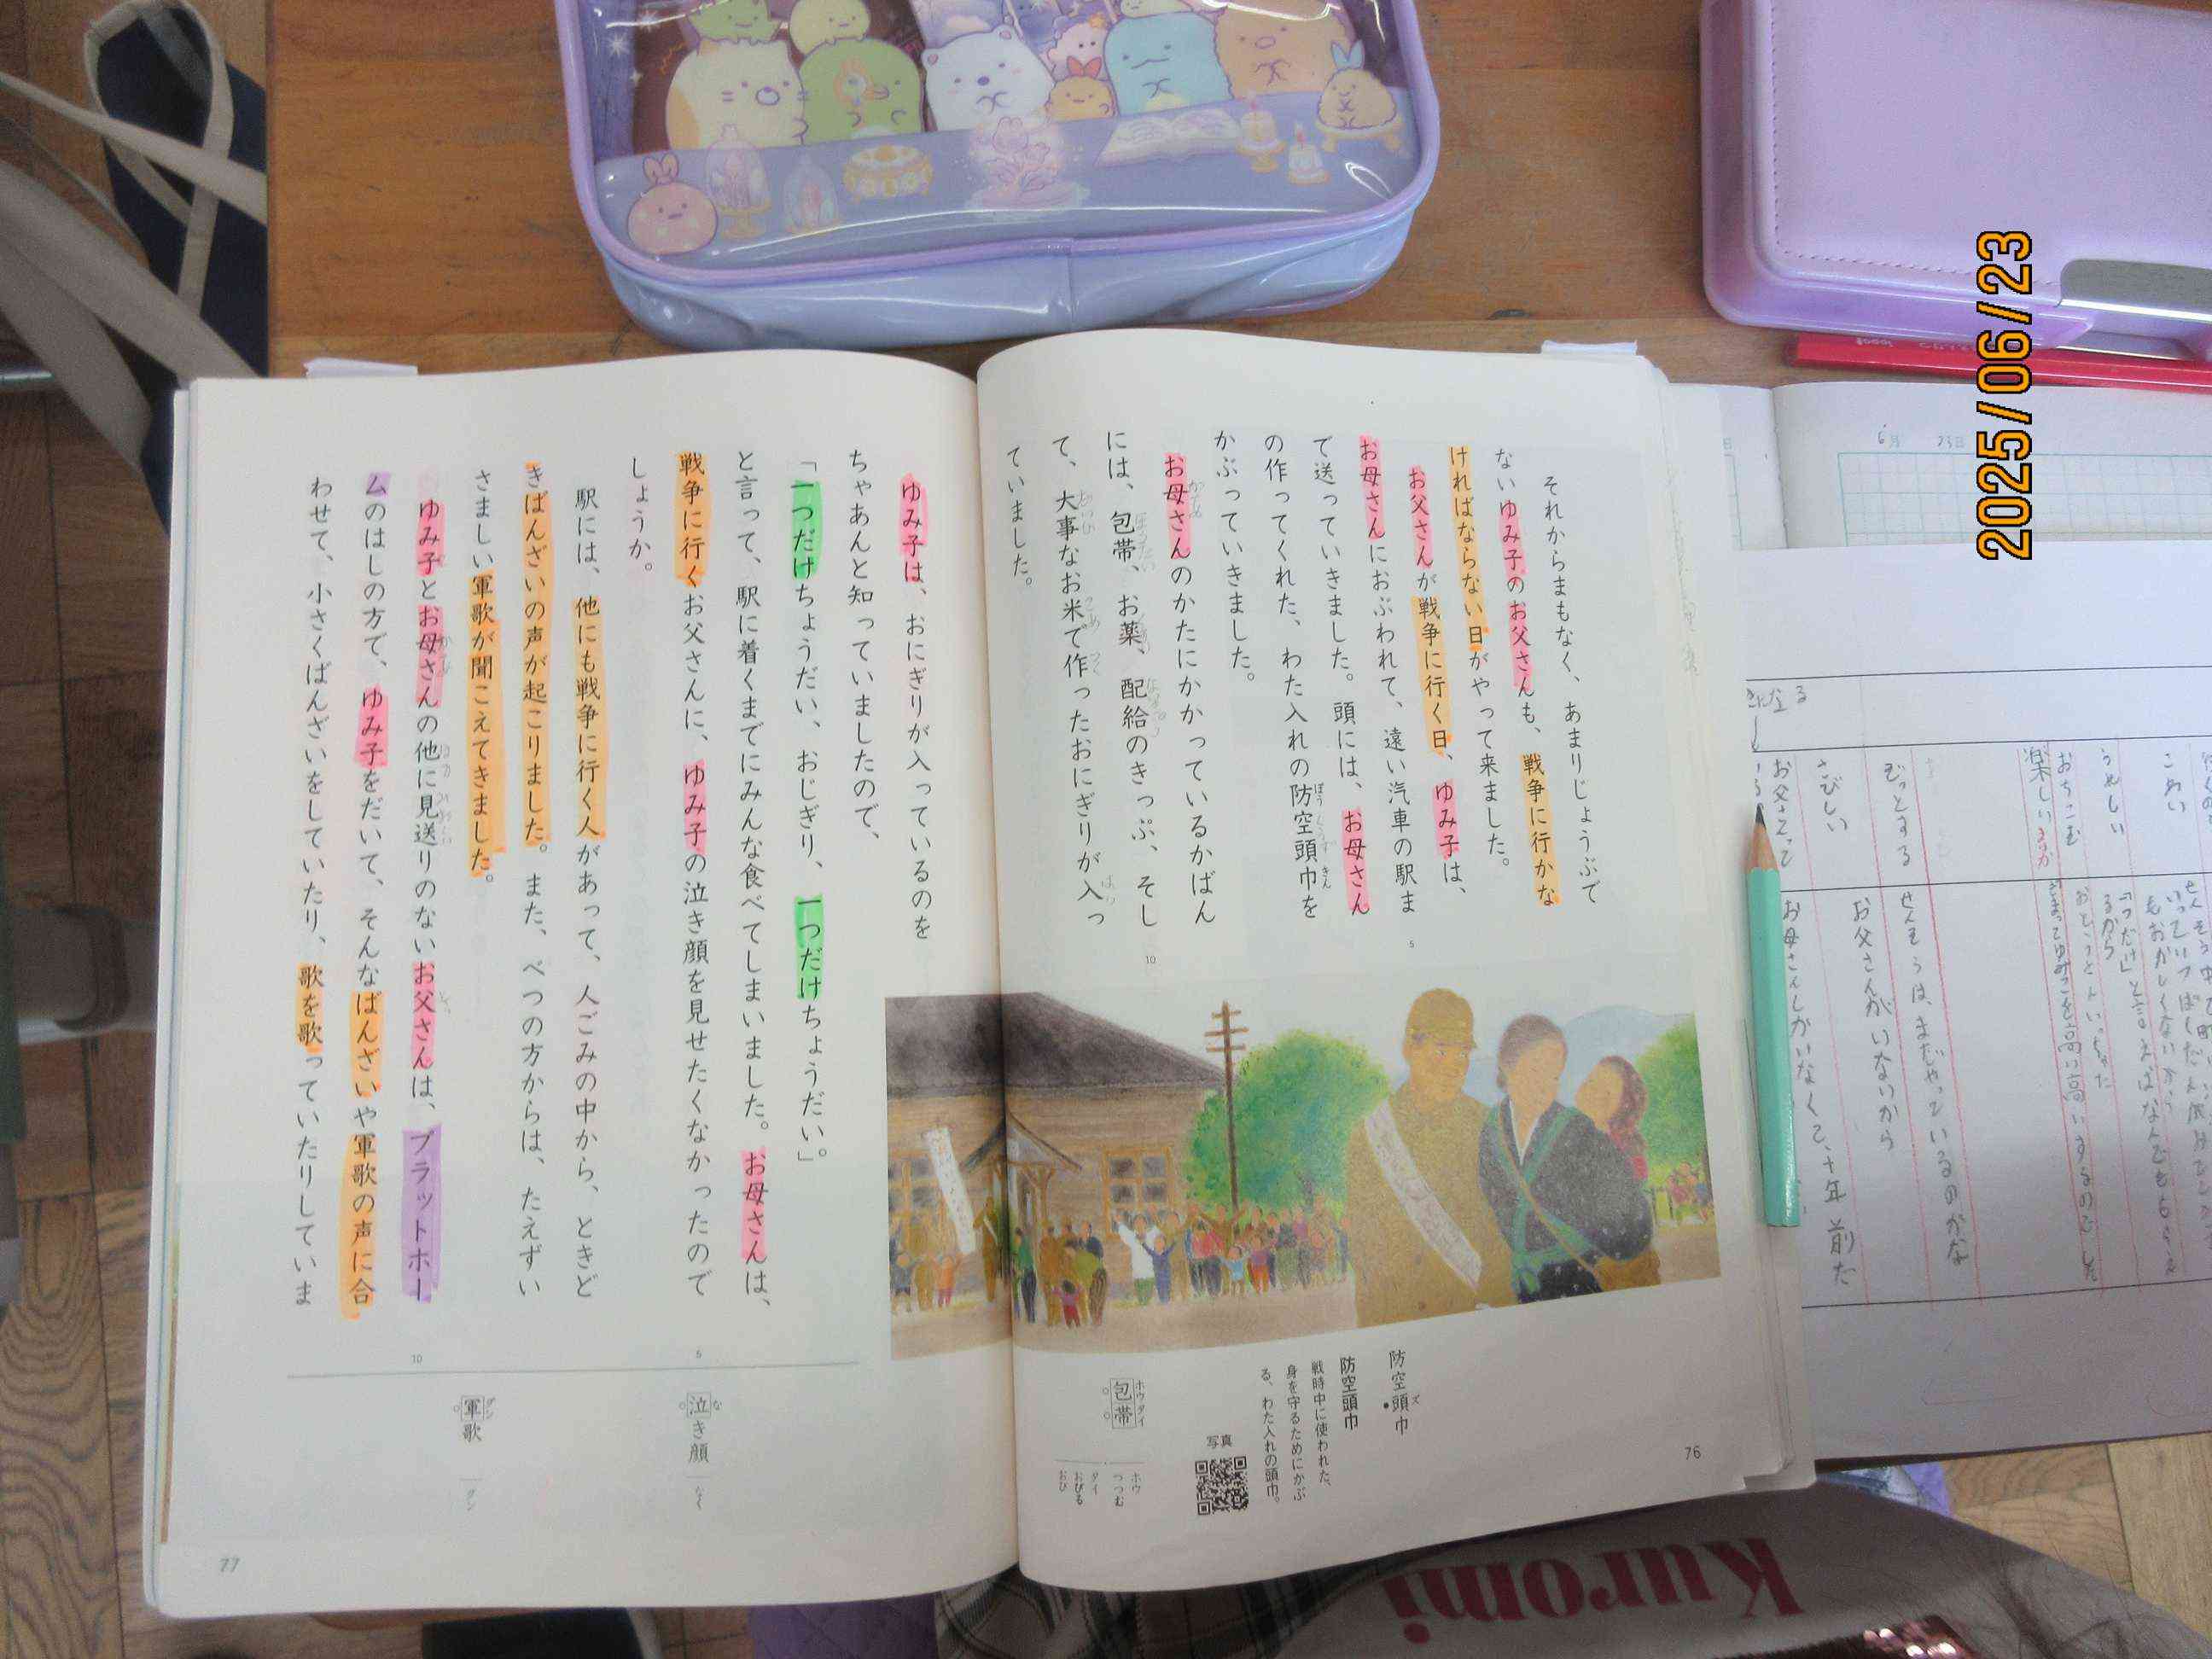 それからまもなく、あまりじょうぶで
ないゆみ子のお父さんも、戦争に行かな
ければならない日がやって来ました。
お父さんが戦争に行く日、ゆみ子は、
お母さんにおぶわれて、遠い汽車の駅ま
で送っていきました。頭には、お母さん
の作ってくれた、わた入れの防空頭巾を
かぶっていきました。
お母さんのかたにかかっているかばん
には、包帯、お薬、配給のきっぷ、そし
て、大事なお米で作ったおにぎりが入っ
ていました。
防空頭巾
防空頭巾
戦時中に使われた、
身を守るためにかぶ
る、わた入れの頭巾。
写真
包帯
ホウタイ
ホウ
つつむ
タイ
おびる
おび
76
ゆみ子は、おにぎりが入っているのを
ちゃあんと知っていましたので、
「一つだけちょうだい、おじぎり、一つだけちょうだい。」
と言って、駅に着くまでにみんな食べてしまいました。お母さんは、
戦争に行くお父さんに、ゆみ子の泣き顔を見せたくなかったので
しょうか。
駅には、他にも戦争に行く人があって、人ごみの中から、ときど
きばんざいの声が起こりました。また、べつの方からは、たえずい
さましい軍歌が聞こえてきました。
ゆみ子とお母さんの他に見送りのないお父さんは、プラットホー
ムのはしの方で、ゆみ子をだいて、そんなばんざいや軍歌の声に合
わせて、小さくばんざいをしていたり、歌を歌っていたりしていま
5
10
5
10
泣き顔
なく
軍歌
グン
77
2025/06/23
6月 23日
こわい
うれしい
おちこむ
楽しい
ぞっとする
さびしい
お父さんがいないから
Kuromi